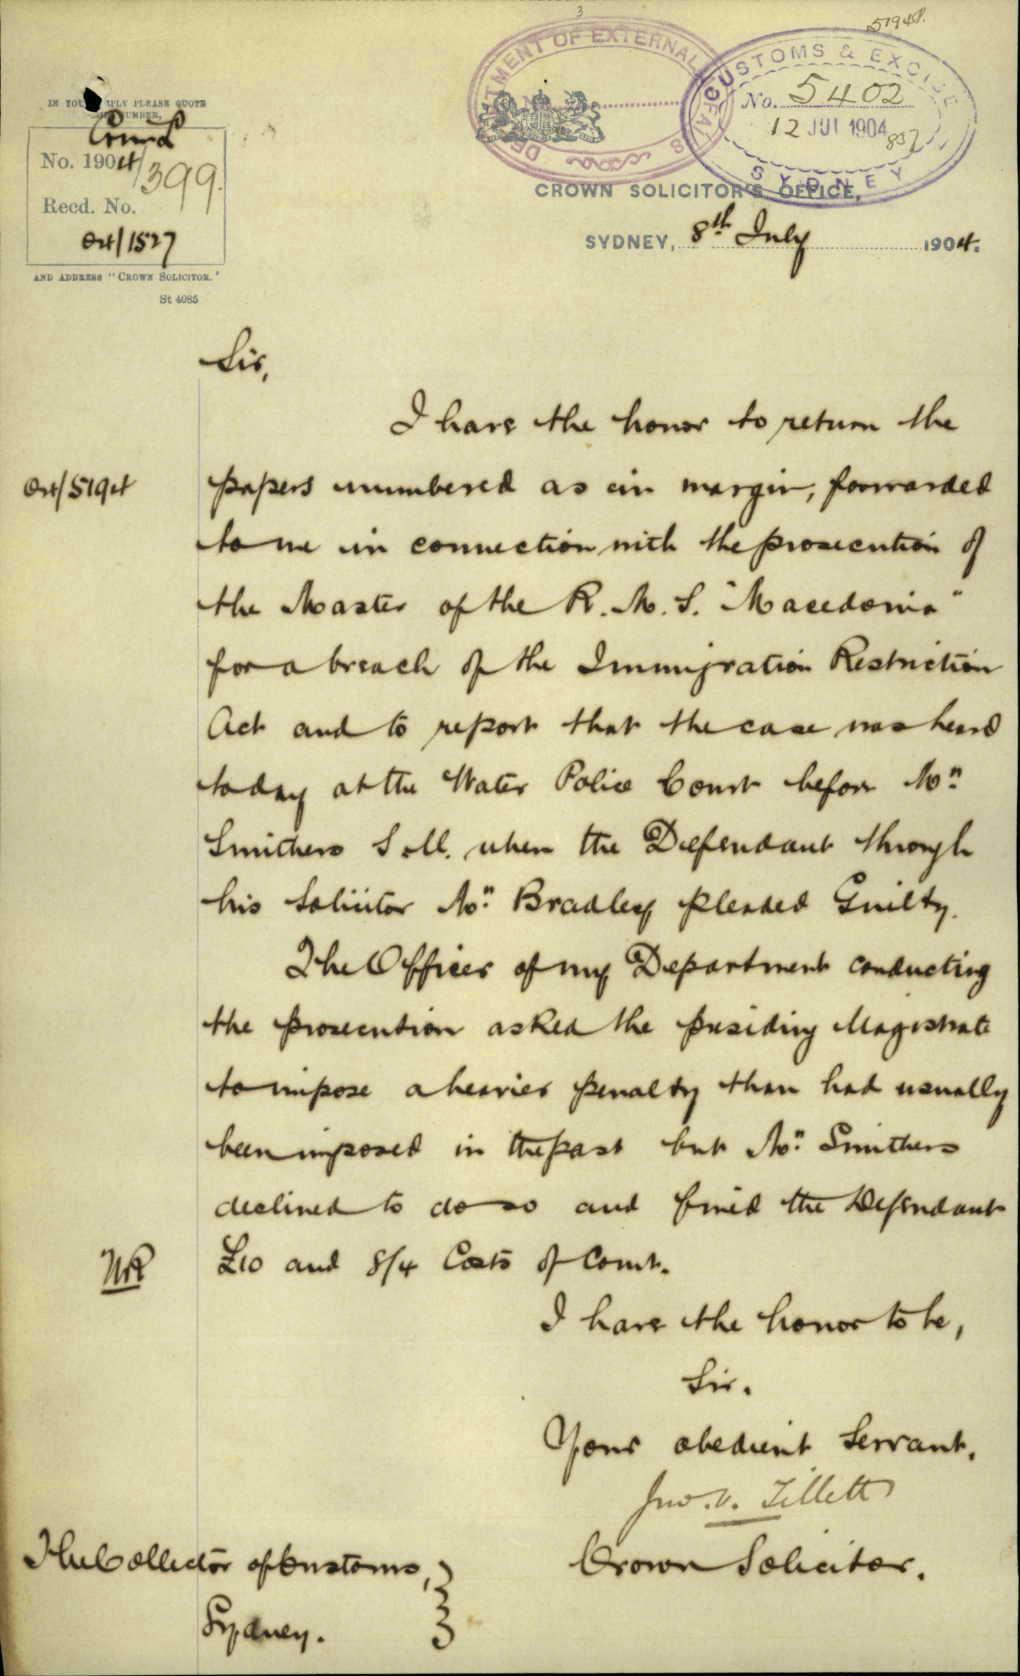 3
5194/1.
DEPARTMENT OF EXTERNAL AFFAIRS
CUSTOMS & EXCISE
No. 5402
12 JUL 1904
857
SYDNEY
IN YOUR REPLY PLEASE QUOTE
THIS NUMBER,
Com'l
No. 1904/399.
Recd. No.
04/1527
AND ADDRESS "CROWN SOLICITOR."
St 4085
CROWN SOLICITOR'S OFFICE,
SYDNEY, 8th July 1904.
Sir,
I have the honor to return the
04/5194
papers numbered as in margin, forwarded
to me in connection with the prosecution of
the Master of the R.M.S. "Macedonia"
for a breach of the Immigration Restriction
Act and to report that the case was heard
today at the Water Police Court before Mr.
Smithers S.M. when the Defendant through
his Solicitor Mr. Bradley pleaded Guilty.
The Officer of my Department conducting
the prosecution asked the presiding Magistrate
to impose a heavier penalty than had usually
been imposed in the past but Mr. Smithers
declined to do so and fined the Defendant
£10 and 8/4 Costs of Court.
I have the honor to be,
Sir.
Your obedient Servant.
Jno. V. Tillett
Crown Solicitor.
The Collector of Customs,
Sydney.